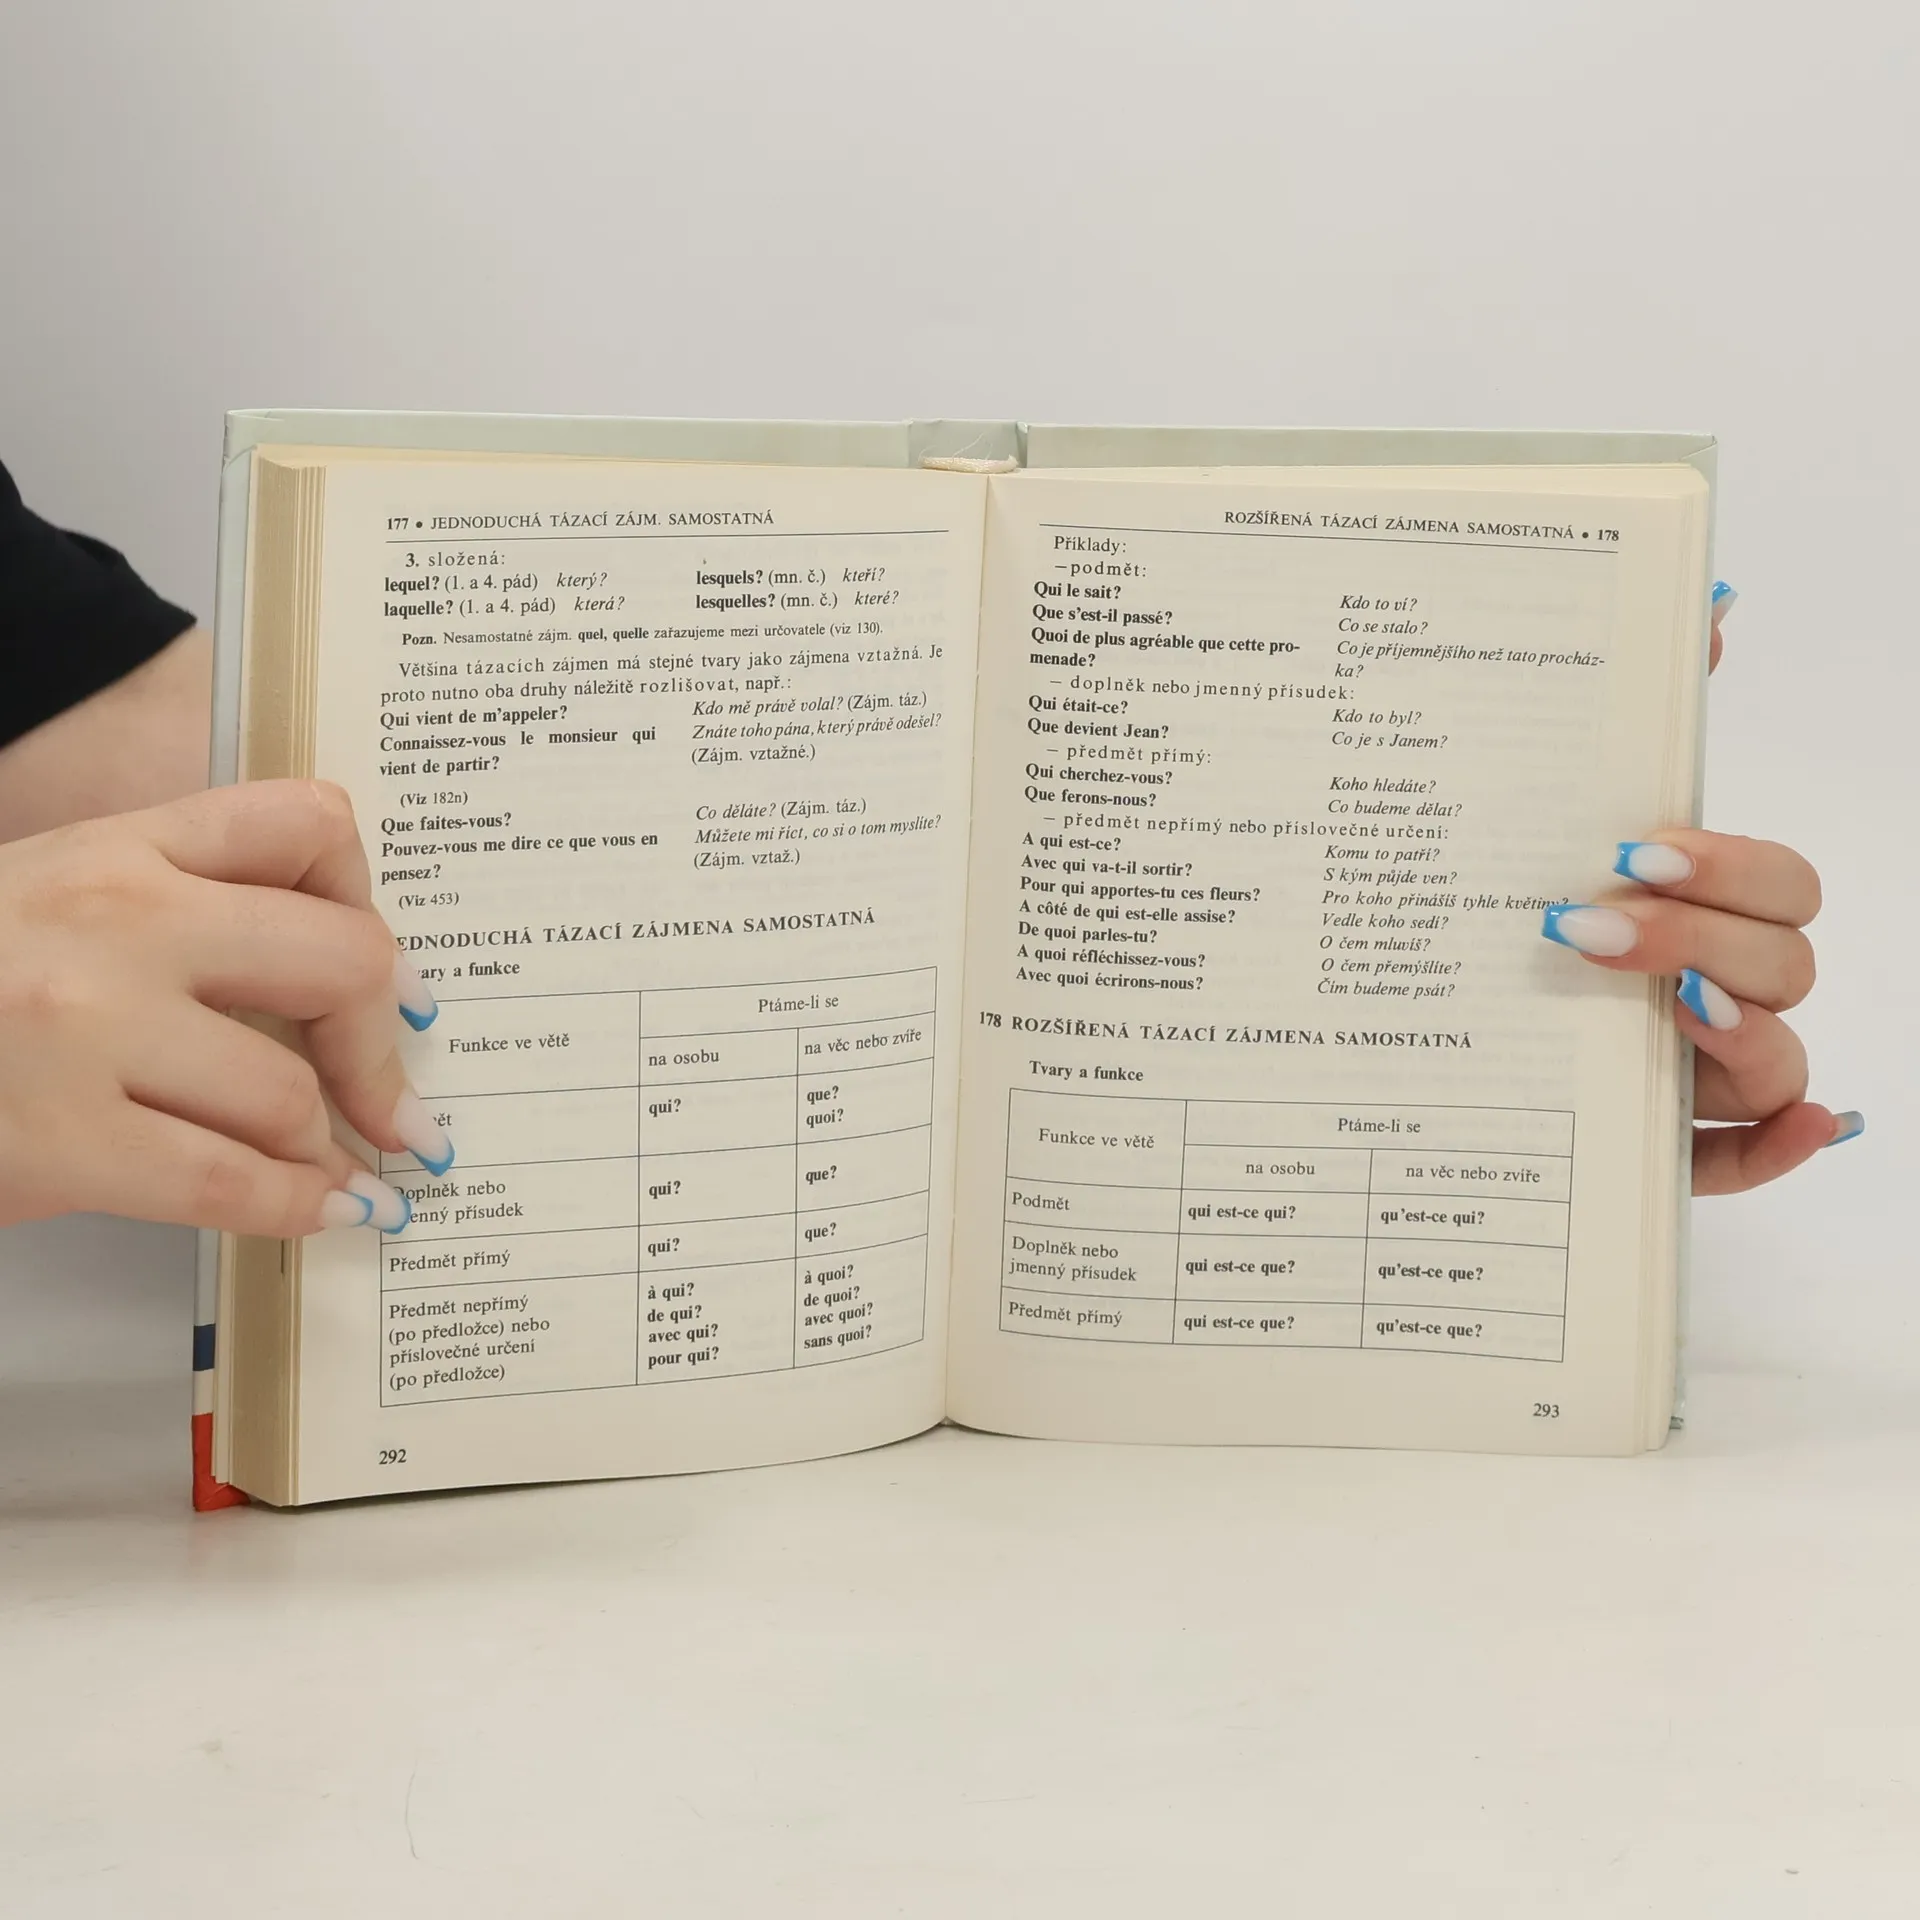 177 • JEDNODUCHÁ TÁZACÍ ZÁJM. SAMOSTATNÁ
3. složená:
lequel? (1. a 4. pád) který? lesquels? (mn. č.) kteří?
laquelle? (1. a 4. pád) která? lesquelles? (mn. č.) které?
Pozn. Nesamostatné zájm. quel, quelle zařazujeme mezi určovatele (viz 130).
Většina tázacích zájmen má stejné tvary jako zájmena vztažná. Je
proto nutno oba druhy náležitě rozlišovat, např.:
Qui vient de m'appeler? Kdo mě právě volal? (Zájm. táz.)
Connaissez-vous le monsieur qui Znáte toho pána, který právě odešel?
vient de partir? (Zájm. vztažné.)
(Viz 182n)
Que faites-vous? Co děláte? (Zájm. táz.)
Pouvez-vous me dire ce que vous en Můžete mi říct, co si o tom myslíte?
pensez? (Zájm. vztaž.)
(Viz 453)
EDNODUCHÁ TÁZACÍ ZÁJMENA SAMOSTATNÁ
vary a funkce
Funkce ve větě Ptáme-li se
na osobu na věc nebo zvíře
ět qui? que?
quoi?
Doplněk nebo
enný přísudek qui? que?
Předmět přímý qui? que?
Předmět nepřímý à qui? à quoi?
(po předložce) nebo de qui? de quoi?
příslovečné určení avec qui? avec quoi?
(po předložce) pour qui? sans quoi?
292
ROZŠÍŘENÁ TÁZACÍ ZÁJMENA SAMOSTATNÁ • 178
Příklady:
—podmět:
Qui le sait? Kdo to ví?
Que s'est-il passé? Co se stalo?
Quoi de plus agréable que cette pro- Co je příjemnějšího než tato procház-
menade? ka?
— doplněk nebo jmenný přísudek:
Qui était-ce? Kdo to byl?
Que devient Jean? Co je s Janem?
— předmět přímý:
Qui cherchez-vous? Koho hledáte?
Que ferons-nous? Co budeme dělat?
— předmět nepřímý nebo příslovečné určení:
A qui est-ce? Komu to patří?
Avec qui va-t-il sortir? S kým půjde ven?
Pour qui apportes-tu ces fleurs? Pro koho přinášíš tyhle květiny?
A côté de qui est-elle assise? Vedle koho sedí?
De quoi parles-tu? O čem mluvíš?
A quoi réfléchissez-vous? O čem přemýšlíte?
Avec quoi écrirons-nous? Čím budeme psát?
178 ROZŠÍŘENÁ TÁZACÍ ZÁJMENA SAMOSTATNÁ
Tvary a funkce
Funkce ve větě Ptáme-li se
na osobu na věc nebo zvíře
Podmět qui est-ce qui? qu'est-ce qui?
Doplněk nebo
jmenný přísudek qui est-ce que? qu'est-ce que?
Předmět přímý qui est-ce que? qu'est-ce que?
293